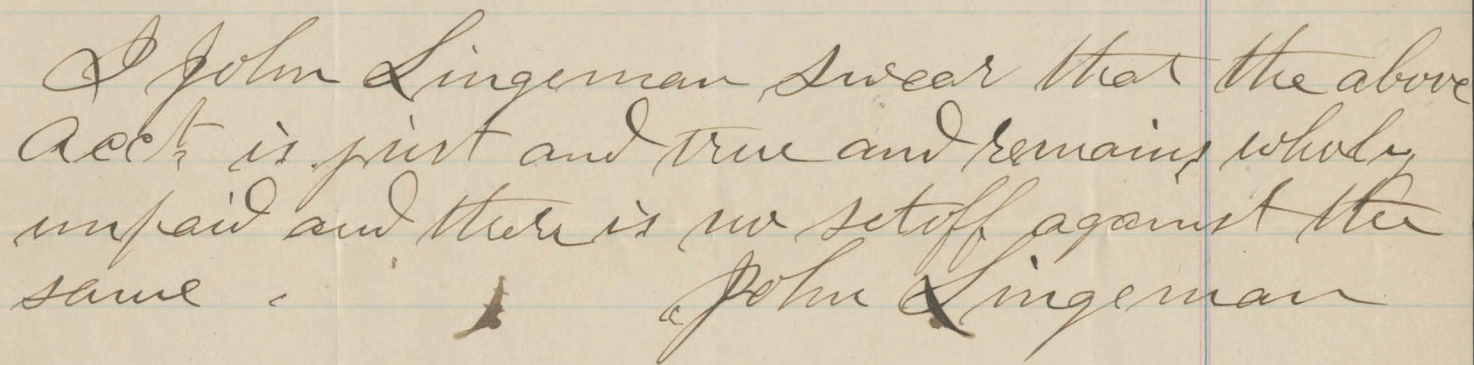 I John Lingeman swear that the above
Acct, is just and true and remains wholy
unpaid and there is no setoff against the
same . John Lingeman